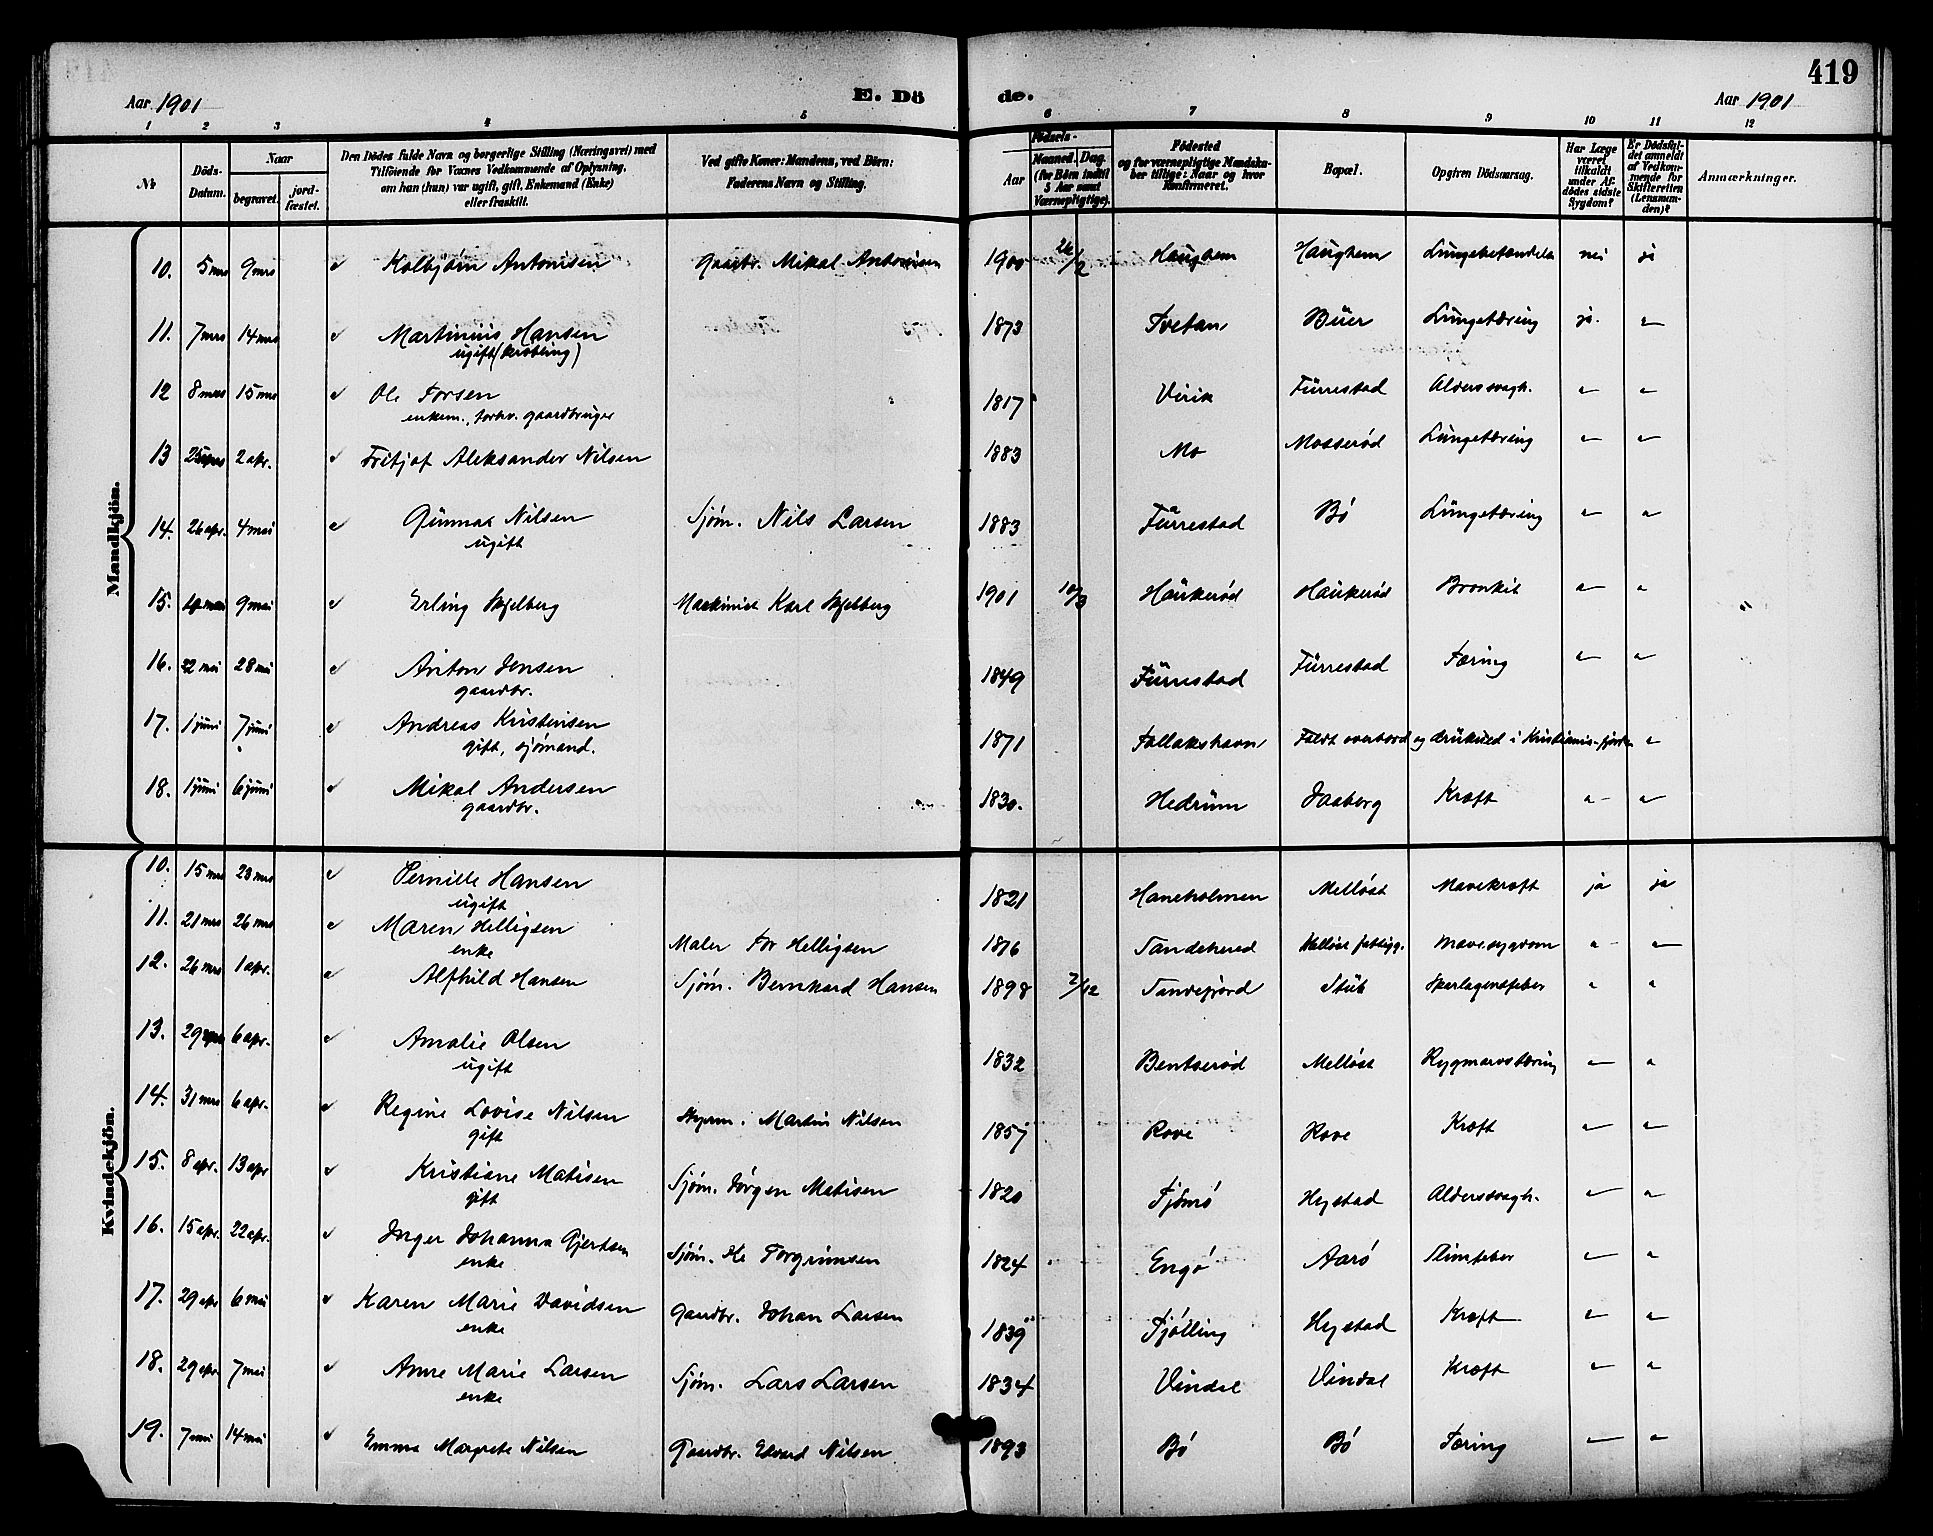 419
Aar 1901 E. Dö de. Aar 1901
1 2 3 4 5 6 7 8 9 10 11 12
No Döds-Datum. Naar begravet. jord-fæstet. Den Dödes fulde Navn og borgerlige Stilling (Næringsvei) med Tilföiende for Voxnes Vedkommende af Oplysning, om han (hun) var ugift, gift, Enkemand (Enke) eller fraskilt. Ved gifte Koner: Mandens, ved Börn: Faderens Navn og Stilling. Födsels- Aar Maaned. Dag. (for Börn indtil 5 Aar samt Værnepligtige). Födested og for værnepligtige Mandskaber tillige: Naar og hvor Konfirmeret. Bopæl. Opgiven Dödsaarsag. Har Læge været tilkaldt under Afdödes sidste Sygdom? Er Dödsfaldet anmeldt af Vedkommende for Skifteretten (Lensmanden)? Anmærkninger.
Mandkjön.
10. 5 mrs 9 mrs Kolbjørn Antonisen Gaardbr. Mikal Antonisen 1900 26/2 Haughem Haughem Lungebetændelse nei ja
11. 7 mrs 14 mrs Martinius Hansen 1873 Tvetan Buer Lungetæring ja. "
ugift (krøbling)
12 8 mrs 15 mrs Ole Torsen 1817 Virik Furrestad Alderssvagh. " "
enkem., forhv. gaardbruger
13 25 mrs 2 apr. Fritjof Aleksander Nilsen 1883 Mo Mosserød Lungetæring " "
14. 26 apr. 4 mai Gunnar Nilsen Sjøm. Nils Larsen 1883 Furrestad Bø Lungetæring " "
ugift
15. 4 mai 9 mai Erling Skjelberg Maskinist Karl Skjelberg 1901 10/3 Haukerød Haukerød Bronkit " "
16. 22 mai 28 mai Anton Jensen 1849 Furrestad Furrestad Tæring " "
gaardbr.
17. 1 juni 7 juni Andreas Kristensen 1871 Follakshavn Faldt overbord og druknede i Kristianiafjorden "
gift, sjømand.
18. 1 juni 6 juni Mikal Andersen 1830. Hedrum Jaaberg Kræft " "
gaardbr.
Kvindekjön.
10. 15 mrs 23 mrs Pernille Hansen 1821 Haneholmen Melløst Mavekræft ja ja
ugift
11. 21 mrs 26 mrs Maren Helligsen Maler Tor Helligsen 1816 Sandeherred Melløst fattigg. Mavesygdom " "
enke
12. 26 mrs 1 apr. Alfhild Hansen Sjøm. Bernhard Hansen 1898 2/12 Sandefjord Stub Skarlagensfeber " "
13. 29 mrs 6 apr. Amalie Olsen 1832 Bentserød Melløst Rygmarvstæring " "
ugift
14. 31 mrs 6 apr. Regine Lovise Nilsen Styrm. Martin Nilsen 1857 Rove Rove Kræft " "
gift
15. 8 apr. 13 apr Kristiane Matisen Sjøm. Jørgen Matisen 1820 Tjømø Hystad Alderssvagh. " "
gift
16. 15 apr. 22 apr. Inger Johanna Gjertsen Sjøm. He Torgrimsen 1824 Engø Aarø Slimfeber " "
enke
17. 29 apr 6 mai Karen Marie Davidsen Gaardbr. Johan Larsen 1839 Tjølling Hystad Kræft " "
enke
18. 29 apr. 7 mai Anne Marie Larsen Sjøm. Lars Larsen 1834 Vindal Vindal Kræft " "
enke
19. 7 mai 14 mai Emma Margrete Nilsen Gaardbr. Edvard Nilsen 1893 Bø Bø Tæring " "